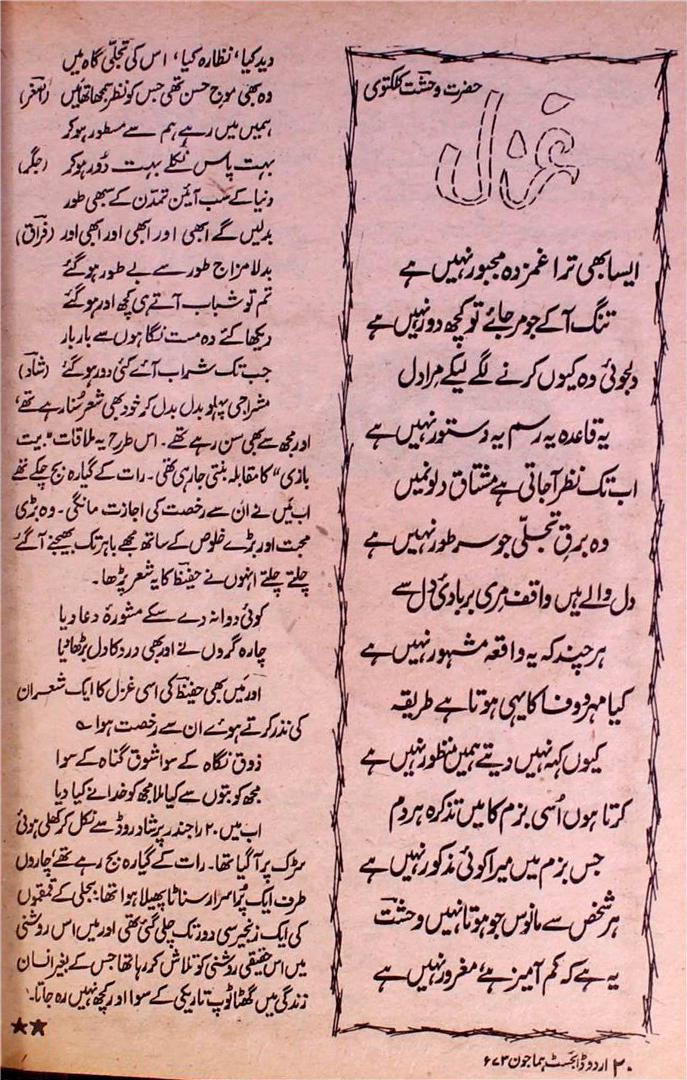 حضرت وحشتؔ کلکتوی
غزل
ایسا بھی ترا غمزدہ مجبور نہیں ہے
تنگ آکے جو مر جائے تو کچھ دور نہیں ہے
دلجوئی وہ کیوں کرنے لگے لیکے مرا دل
یہ قاعدہ یہ رسم یہ دستور نہیں ہے
اب تک نظر آجاتی ہے مشتاق دلوں میں
وہ برقِ تجلّی جو سرِ طور نہیں ہے
دل والے ہیں واقف مری بربادیٔ دل سے
ہر چند کہ یہ واقعہ مشہور نہیں ہے
کیا مہر و وفا کا یہی ہوتا ہے طریقہ
کیوں کہہ نہیں دیتے ہمیں منظور نہیں ہے
کرتا ہوں اُسی بزم کا میں تذکرہ ہر دم
جس بزم میں میرا کوئی مذکور نہیں ہے
ہر شخص سے مانوس جو ہوتا نہیں وحشتؔ
یہ ہے کہ کم آمیز ہے، مغرور نہیں ہے
دید کیا، نظارہ کیا، اس کی تجلّی گاہ میں
وہ بھی موج حسن تھی جس کو نظر سمجھا تھا میں (اصغرؔ)
ہمیں میں رہے ہم سے مستور ہوکر
بہت پاس نکلے بہت دُور ہوکر (جگرؔ)
دنیا کے سب آئین تمدّن کے سبھی طور
بدلیں گے ابھی اور ابھی اور ابھی اور (فراقؔ)
بدلا مزاج طور سے بے طور ہوگئے
تم تو شباب آتے ہی کچھ اور ہوگئے
دیکھا کئے وہ مست نگاہوں سے بار بار
جب تک شراب آئے کئی دور ہوگئے (شادؔ)
مشراجی پہلو بدل بدل کر خود بھی شعر سُنا رہے تھے،
اور مجھ سے بھی سن رہے تھے۔ اس طرح یہ ملاقات "بیت
بازی" کا مقابلہ بنتی جارہی تھی۔ رات کے گیارہ بج چکے تھے
اب میں نے ان سے رخصت کی اجازت مانگی۔ وہ بڑی
محبت اور بڑے خلوص کے ساتھ مجھے باہر تک بھیجنے آگئے
چلتے چلتے انہوں نے حفیظؔ کا یہ شعر پڑھا۔
کوئی دوا نہ دے سکے مشورۂ دعا دیا
چارہ گروں نے اور بھی درد کا دل بڑھا دیا
اور میں بھی حفیظؔ کی اسی غزل کا ایک شعر ان
کی نذر کرتے ہوئے ان سے رخصت ہوا ؎
ذوقِ نگاہ کے سوا شوقِ گناہ کے سوا
مجھ کو بتوں سے کیا ملا مجھ کو خدا نے کیا دیا
اب میں ۲۰ راجندر پرشاد روڈ سے نکل کر کھلی ہوئی
سڑک پر آگیا تھا۔ رات کے گیارہ بج رہے تھے، چاروں
طرف ایک پُراسرار سناٹا پھیلا ہوا تھا، بجلی کے قمقموں
کی ایک زنجیر سی دور تک چلی گئی تھی اور میں اس روشنی
میں اس حقیقی روشنی کو تلاش کررہا تھا جس کے بغیر انسان
زندگی میں گھٹا ٹوپ تاریکی کے سوا اور کچھ نہیں رہ جاتا۔
★★
۲۰ اردو ڈائجسٹ ہما جون ۶۷۳